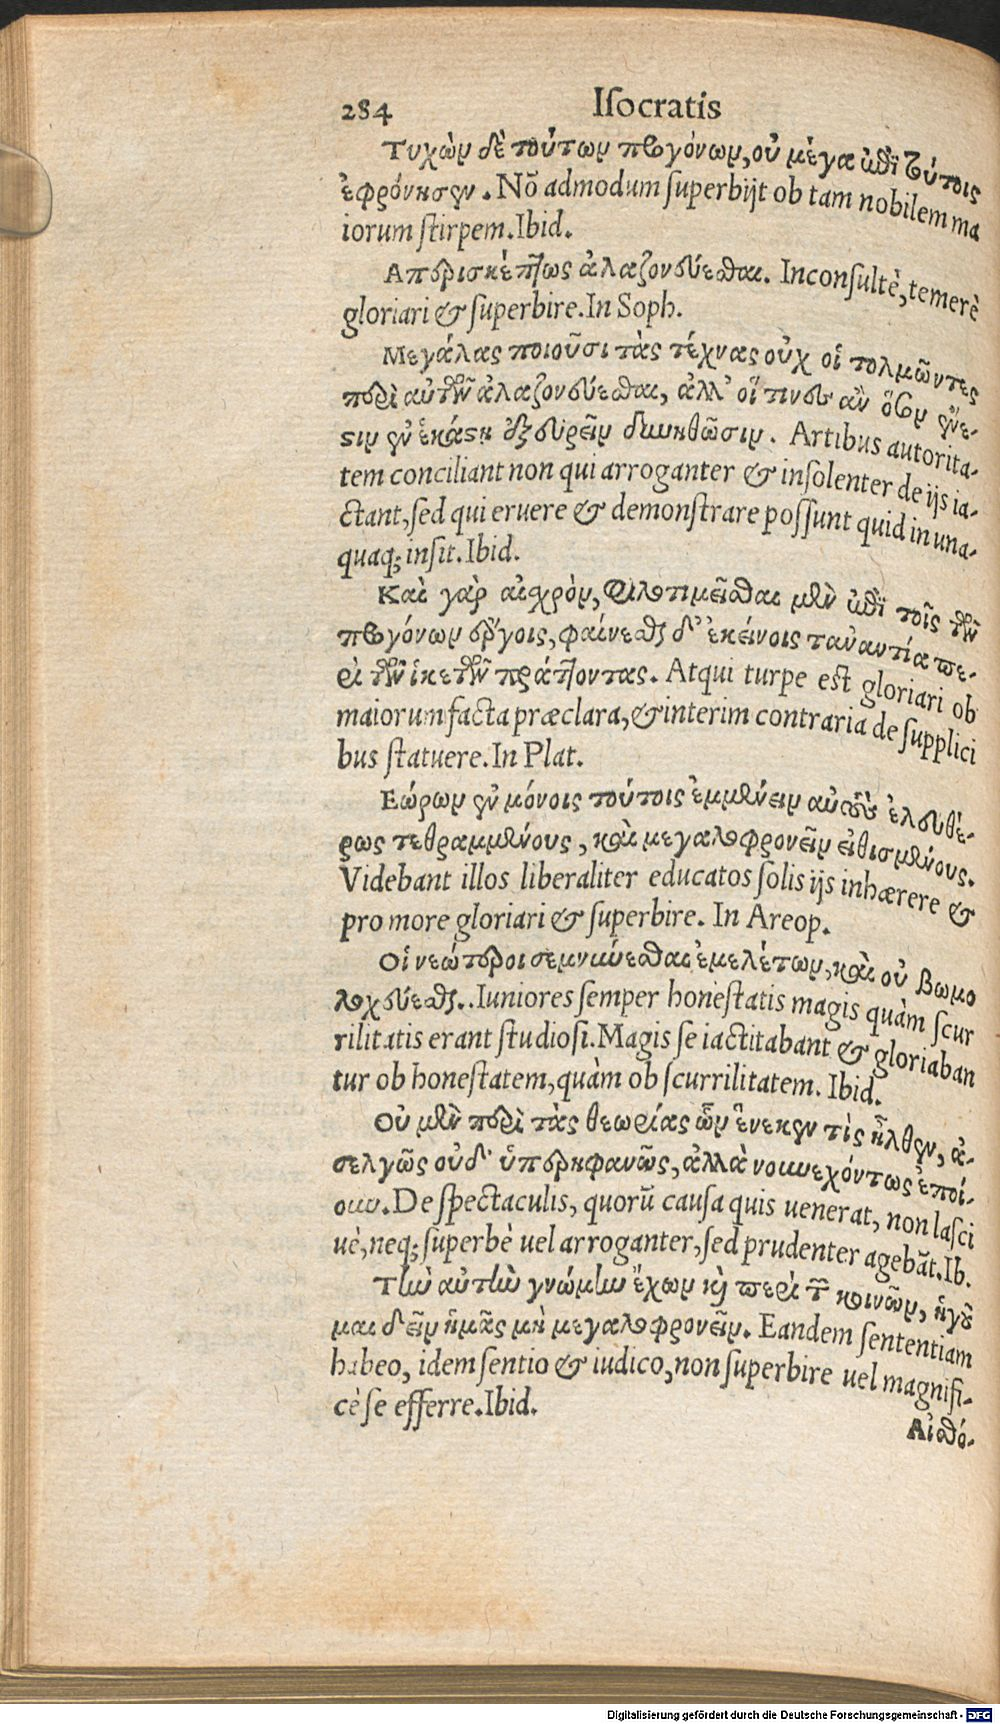 284 Iſocratis
Τυχὼν δὲ τούτων προγόνων, οὐ μέγα ἐπὶ τύτοις
ἐφρόνησεν. Nō admodum ſuperbijt ob tam nobilem ma
iorum ſtirpem. Ibid.
Απερισκέπτως ἀλαζονεύεσθαι. Inconſultè, temerè
gloriari & ſuperbire. In Soph.
Μεγάλας ποιοῦσι τὰς τέχνας οὐχ οἱ τολμῶντες
περὶ αὐτῶν ἀλαζονεύεσθαι, ἀλλ' οἵ τινες ἂν ὅσον ἔνε-
στιν ἐν ἑκάστη ἐξευρεῖν δυνηθῶσιν. Artibus autorita-
tem conciliant non qui arroganter & inſolenter de ijs ia-
ctant, ſed qui eruere & demonſtrare poſſunt quid in una-
quaq; inſit. Ibid.
Καὶ γὰρ αἰσχρὸν, φιλοτιμεῖσθαι μὲν ἐπὶ τοῖς τῶν
προγόνων ἔργοις, φαίνεσθαι δ' ἐκείνοις ταὐναντία πε-
ρὶ τῶν ἱκετῶν πράττοντας. Atqui turpe est gloriari ob
maiorum facta præclara, & interim contraria de ſupplici
bus ſtatuere. In Plat.
Εώρων ἐν μόνοις τούτοις ἐμμένειν αὐτοὺς ἐλευθέ-
ρως τεθραμμένους, καὶ μεγαλοφρονεῖν εἰθισμένους.
Videbant illos liberaliter educatos ſolis ijs inhærere &
pro more gloriari & ſuperbire. In Areop.
Οἱ νεώτεροι σεμνύνεσθαι ἐμελέτων, καὶ οὐ βωμο
λοχεύεσθαι.. Iuniores ſemper honeſtatis magis quàm ſcur
rilitatis erant ſtudioſi. Magis ſe iactitabant & gloriaban
tur ob honeſtatem, quàm ob ſcurrilitatem. Ibid.
Οὐ μὲν περὶ τὰς θεωρίας ὧν ἕνεκεν τὶς ἦλθεν, ἀ-
σελγῶς οὐδ' ὑπερηφανῶς, ἀλλὰ νουνεχόντως ἐποί-
ουν. De ſpectaculis, quorū cauſa quis uenerat, non laſci
uè, neq; ſuperbè uel arroganter, ſed prudenter agebāt. Ib.
Τὴν αὐτὴν γνώμην ἔχων καὶ περὶ τῶν κοινῶν, ἡγοῦ
μαι δεῖν ἡμᾶς μὴ μεγαλοφρονεῖν. Eandem ſententiam
habeo, idem ſentio & iudico, non ſuperbire uel magnifi-
cè ſe efferre. Ibid.
Αἰσθό-
Digitalisierung gefördert durch die Deutsche Forschungsgemeinschaft - DFG